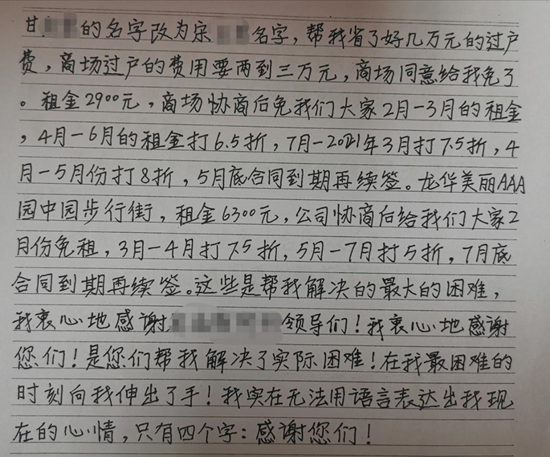 甘的名字改为宋名字，帮我省了好几万元的过户
费，商场过户的费用要两到三万元，商场同意给我免了
。租金2900元，商场协商后免我们大家2月-3月的租金
，4月-6月的租金打6.5折，7月-2021年3月打7.5折，4
月-5月份打8折，5月底合同到期再续签。龙华美丽AAA
园中园步行街，租金6300元，公司协商后给我们大家2
月份免租，3月-4月打7.5折，5月-7月打5折，7月底
合同到期再续签。这些是帮我解决的最大的困难，
我衷心地感谢领导们！我衷心地感谢
您们！是您们帮我解决了实际困难！在我最困难的
时刻向我伸出了手！我实在无法用语言表达出我现
在的心情，只有四个字：感谢您们！